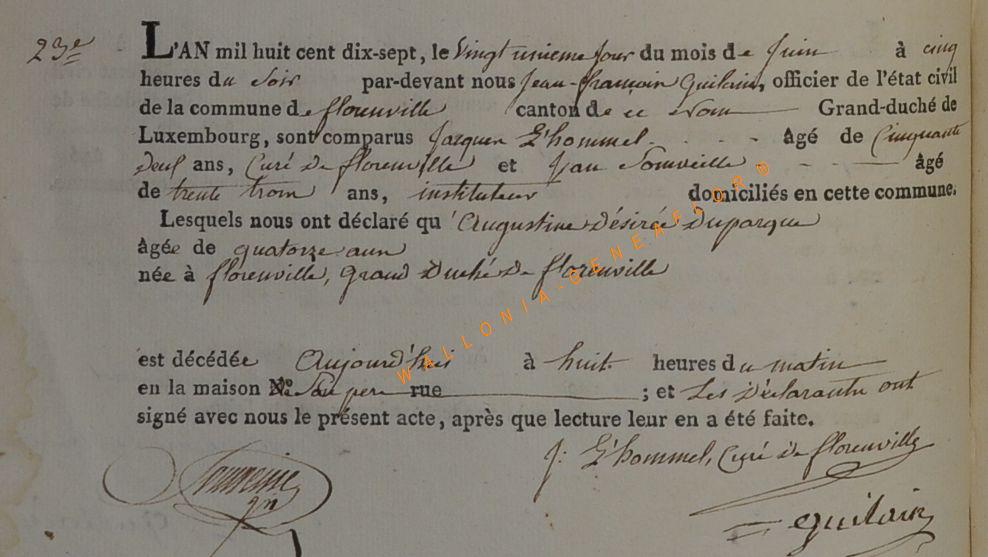 23e
L'AN mil huit cent dix-sept, le Vingt unieme Jour du mois de Juin à cinq
heures du Soir par-devant nous Jean-françois Guilain, officier de l'état civil
de la commune de florenville canton de ce Nom Grand-duché de
Luxembourg, sont comparus Jacques L'hommel agé de Cinquante
deux ans, Curé de florenville et Jean agé
de trente trois ans, instituteur domiciliés en cette commune.
Lesquels nous ont déclaré qu'Augustine Désirée Duparque
âgée de quatorze ans
née à florenville, Grand Duché De florenville
est décédée Aujourd'huis à huit heures du matin
en la maison No. De Son pere rue ; et Les Déclarants ont
signé avec nous le présent acte, après que lecture leur en a été faite.
J: L'hommel, Curé de florenville
guilain
WALLONIA-GENEAFLOR©